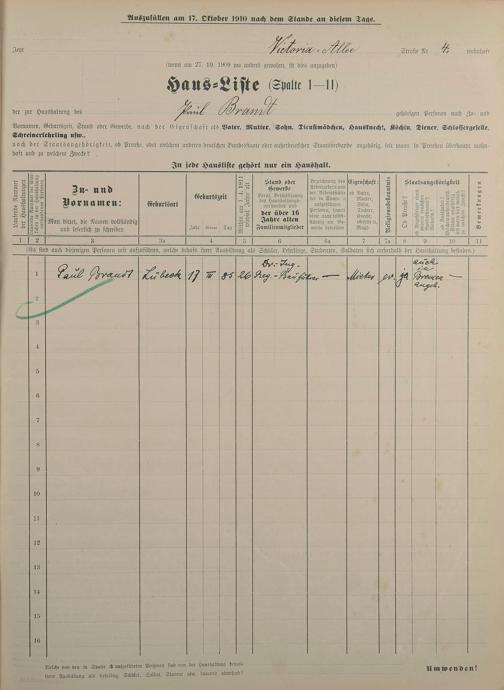 Auszufüllen am 17. Oktober 1910 nach dem Stande an diesem Tage.
Jetzt Victoria-Allee Straße Nr. 4. wohnhaft
(wenn am 27. 10. 1909 wo anders gewohnt, ist dies anzugeben)
Haus-Liste (Spalte 1—11)
der zur Haushaltung des Paul Brandt gehörigen Personen nach Zu- und
Vornamen, Geburtszeit, Stand oder Gewerbe, nach der Eigenschaft als Vater, Mutter, Sohn, Dienstmädchen, Hausknecht, Köchin, Diener, Schlossergeselle,
Schreinerlehrling usw.
nach der Staatsangehörigkeit, ob Preuße, oder welchem anderen deutschen Bundesstaate oder außerdeutschen Staatsverbande angehörig, seit wann in Preußen überhaupt wohn-
haft und zu welchem Zwecke?
In jede Hausliste gehört nur ein Haushalt.
Zu- und
Vornamen:
Man bittet, die Namen vollständig
und leserlich zu schreiben
Geburtsort
Geburtszeit
Jahr
Tag
Stand oder
Gewerbe
der über 16
Jahre alten
Familienmitglieder
Eigenschaft
Religionsbekenntnis
Staatsangehörigkeit
Ob Preuße?
Bemerkungen
1 2 3 3a 4 5 6 6a 7 7a 8 9 10 11
(Es sind auch diejenigen Personen mit aufzuführen, welche behufs ihrer Ausbildung als Schüler, Lehrlinge, Studenten, Soldaten sich außerhalb der Haushaltung befinden)
1 Paul Brandt Lübeck 17 III 85 26 Dr.-Ing. Reg.-Bauführer — Mieter ev. ja auch in Bremen angeh. —
2
3
4
5
6
7
8
9
10
11
12
13
14
15
16
Welche von den in Spalte 3 aufgeführten Personen sind von der Haushaltung behufs
ihrer Ausbildung als Lehrling, Schüler, Soldat, Student usw. dauernd abwesend?
Umwenden!